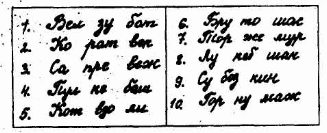 1. Вем зу бат
2. Ко рат век
3. Са пре веж
4. Пуг не баш
5. Кот вдо ли
6. Бру то шас
7. Тор же мур
8. Лу неб шан
9. Су без кин
10. Гор ну маж